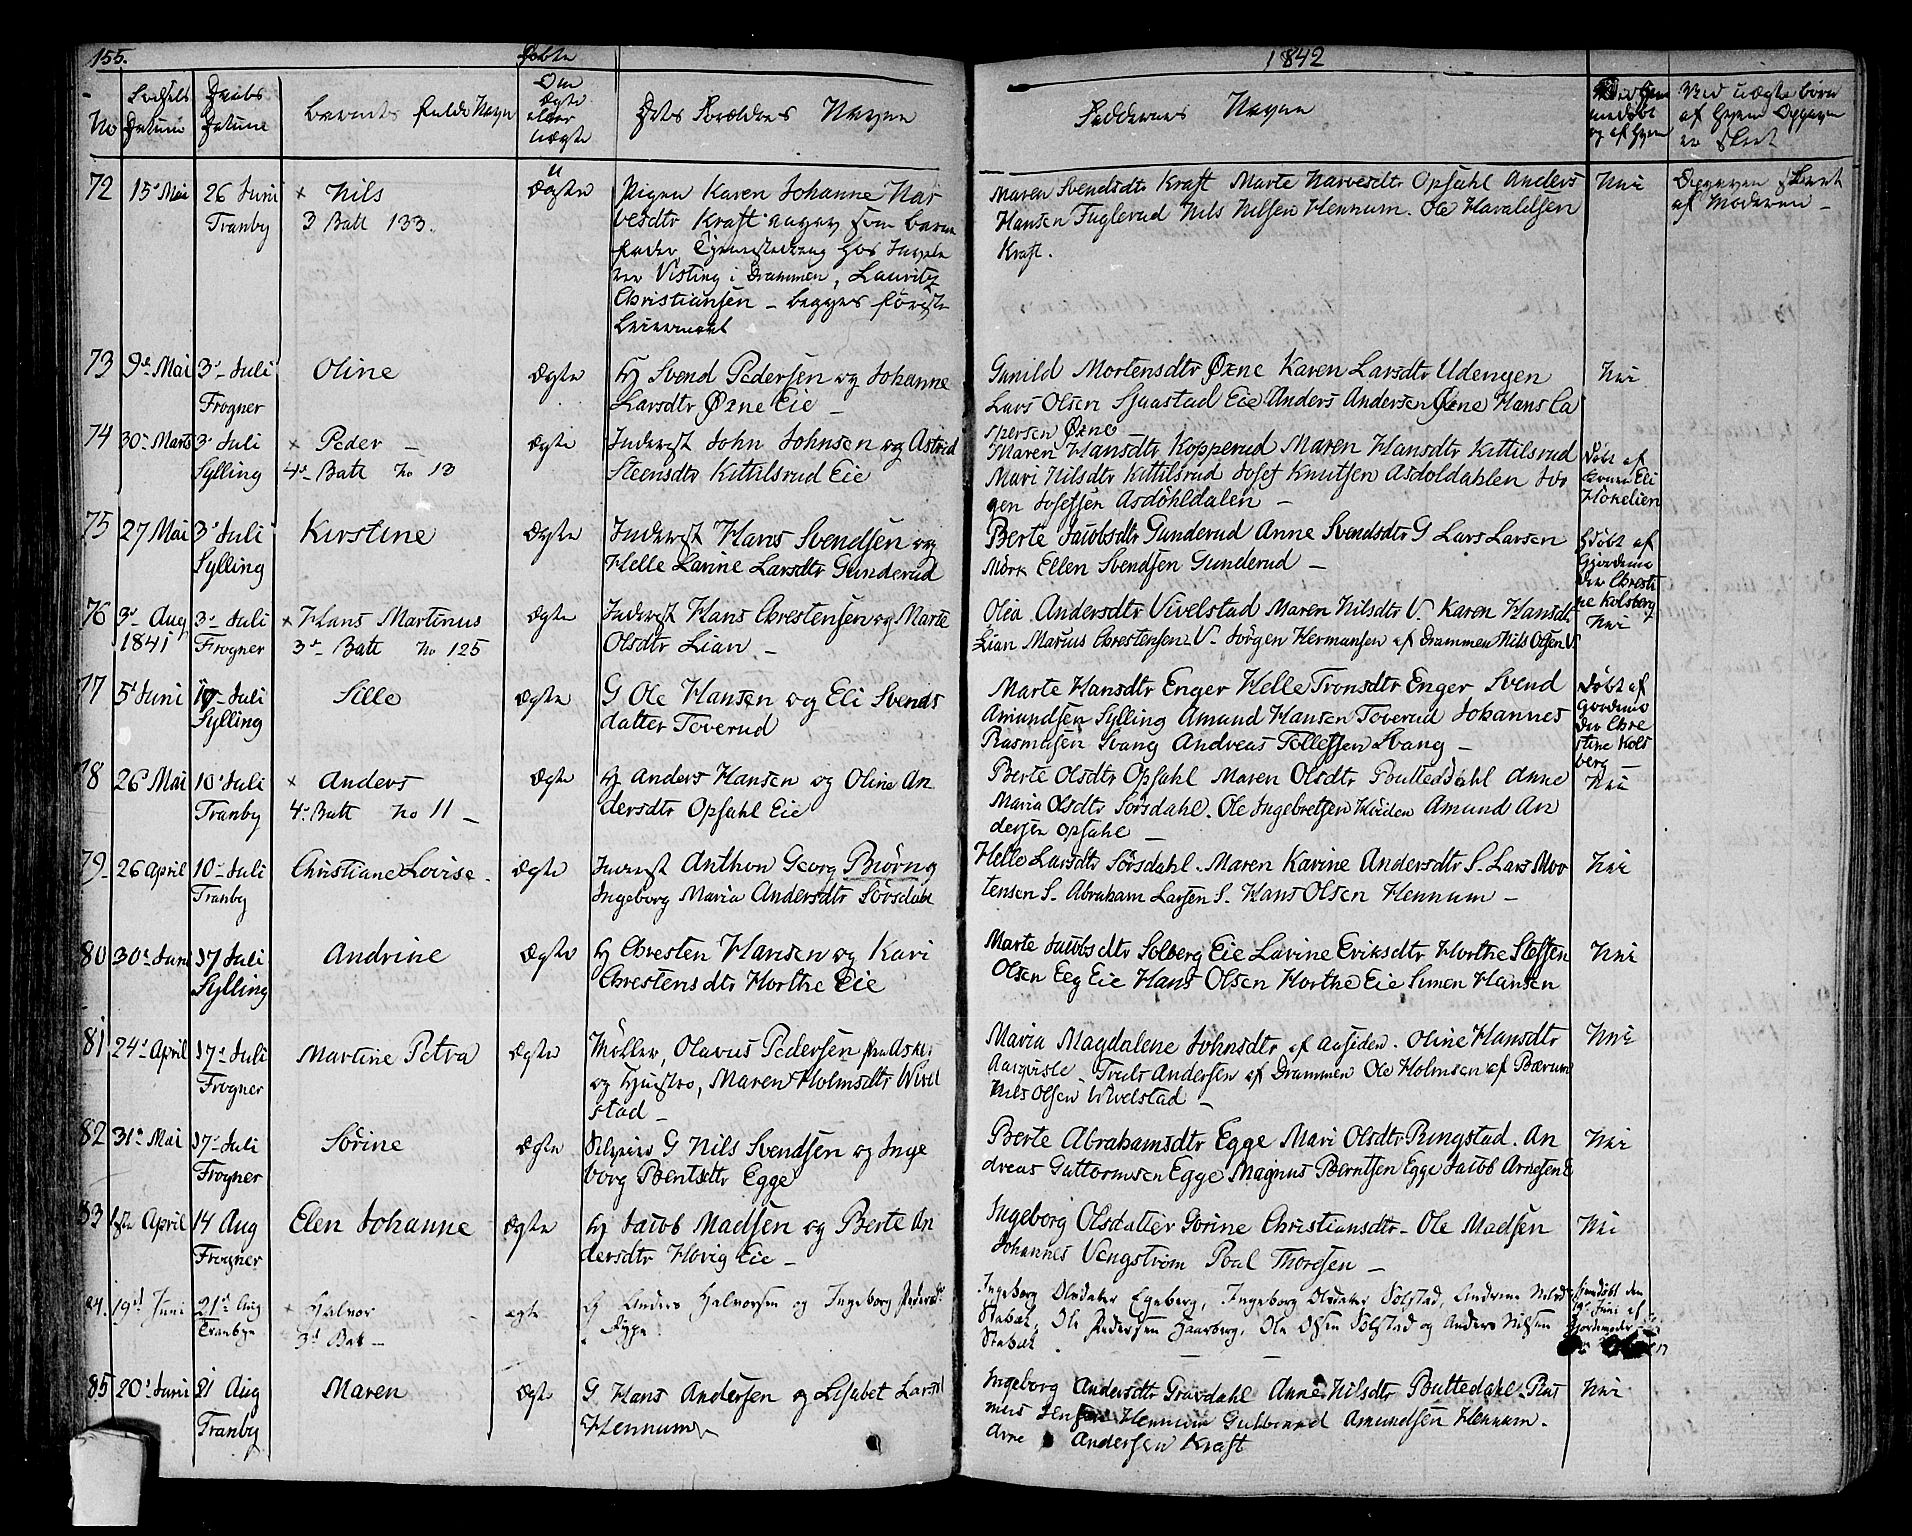 155.
Døbte
1842
No
Fødsels Datum
Daabs Datum
Barnets fulde Navn
Om Ægte eller Uægte
Dets Forældres Navne
Faddernes Navne
Ved Uægte børn af hvem Opgaven er skeet
72 15de Mai 26 Juni × Nils Uægte Pigen Karen Johanne Har
Tranby 3 Batt 133. vesdtr Kraft som barne
fader Tjenestedreng hos
Visting i Drammen, Lauritz
Christiansen – begges første
Leiermaal
Maren Svendsdtr Kraft Marte Harvesdtr Opsahl Anders
Hansen Fuglerud Nils Nilsen Hennum. Ole Havaldsen
Kraft.
Nei
Opgaven skeet
af Moderen –
73 9de Mai 3de Juli Oline Ægte H Svend Pedersen og Johanne
Frogner Larsdtr Øxne Eie –
Gunild Mortensdtr Øxne Karen Larsdtr Udengen
Lars Olsen Sjaastad Eie Anders Andersen Øxne Hans Ca
spersen Øxne
Nei
74 30te Marts 3de Juli × Peder – ægte Inderst John Johnsen og Astrid
Sylling 4de Batt No 13 Steensdtr Kittilsrud Eie
Maren Hansdtr Kopperud Maren Hansdtr Kittilsrud
Mari Nilsdtr Kittilsrud Josef Knutsen Asdoldahlen Jør
gen Josefsen Asdöhldalen –
Døbt af
Eli
75 27 Mai 3de Juli Kirstine Ægte Inderst Hans Svendsen og
Sylling Helle Larine Larsdtr Gunderud
Berte Jacobsdtr Gunderud Anne Svendsdtr G Lars Larsen
Mörk Ellen Svendsen Gunderud –
Hjdøbt af
Gjordemo
der Chresti
ne Kolsberg
76 3de Aug 3de Juli × Hans Martinus Ægte Inderst Hans Chrestensen og Marte
1841 Frogner 3de Batt No 125 Olsdtr Lian –
Olea Andersdtr Vivelstad Maren Nilsdtr V. Karen Hansdtr
Lian Marius Chrestensen V. Jörgen Hermansen af Drammen Nils Olsen V.
Nei
77 5te Juni Juli Sille Ægte G Ole Hansen og Eli Svends
Sylling datter Toverud
Marte Hansdtr Enger Helle Tronsdtr Enger Svend
Amundsen Sylling Amund Hansen Toverud Johannes
Rasmusen Svang Andreas Tollefsen Svang –
Døbt af
gjordemo
der Chre
stine Kols
berg –
78 26 Mai 10de Juli × Anders Ægte H Anders Hansen og Oline An
Tranby 4de Batt No 11 – dersdtr Opsahl Eie
Berte Olsdtr Opsahl Maren Olsdtr Buttedahl Anne
Maria Olsdtr Sörsdahl. Ole Ingebretsen Amund An
dersen Opsahl –
Nei
79 26 April 10de Juli Christiane Lovise. ægte Inderst Anthon Georg Biörn og
Tranby Ingeborg Maria Andersdtr Sörsdahl
Helle Larsdtr Sörsdahl. Maren Karine Andersdtr S. Lars Mor
tensen S. Abraham Larsen S. Hans Olsen Hennum –
Nei
80 30te Juni 17 Juli Andrine Ægte H Chresten Hansen og Kari
Sylling Chrestensdtr Horthe Eie
Marte Jacobsdtr Solberg Eie Larine Eriksdtr Horthe Steffen
Olsen Eeg Eie Hans Olsen Horthe Eie Simen Hansen
Nei
81 24de April 17de Juli Martine Petra ægte Møller, Olavus Pedersen fra Asker
Frogner og Hustro, Maren Holmsdtr Wivel
stad –
Maria Magdalene Johnsdtr af Aasiden. Oline Hansdtr
Aarqvisle. Truls Andersen af Drammen Ole Holmsen af Bærum
Nils Olsen Wivelstad –
Nei
82 31te Mai 17de Juli Sörine ægte G Nils Svendsen og Inge
Frogner borg Bentsdtr Egge
Berte Abrahamsdtr Egge Mari Olsdtr Ringstad. An
dreas Guttormsen Egge Magnus Berntsen Egge Jacob Arnesen E
Nei
83 April 14 Aug Elen Johanne ægte H Jacob Madsen og Berte An
Frogner dersdtr Hovig Eie –
Ingeborg Olsdatter Gorine Christiansdtr – Ole Madsen
Johannes Vengström Poul Thorsen –
Nei
84. 19de Juni 21de Aug × Halvor ægte Anders Halvorsen og Ingeborg Pedersdtr
Tranbye 3de Bat –
Ingeborg Olsdater Egeberg, Ingeborg Olsdater Solstad, Andrine Nilsd
Stabæk, Ole Pedersen Haarberg, Ole Olsen Solstad og Anders Nilsen
Stabæk
hjemdöbt den
19de Juni af
Gjordemoder
85 20de Juni 21 Aug Maren ægte G Hans Andersen og Lisabet Larsd
Tranby Hennum
Ingeborg Andersdtr Gravdahl Anne Nilsdtr Buttedahl Ras
mus Hennum Gulbrand Amundsen Hennum.
Arne Andersen Kraft
Nei